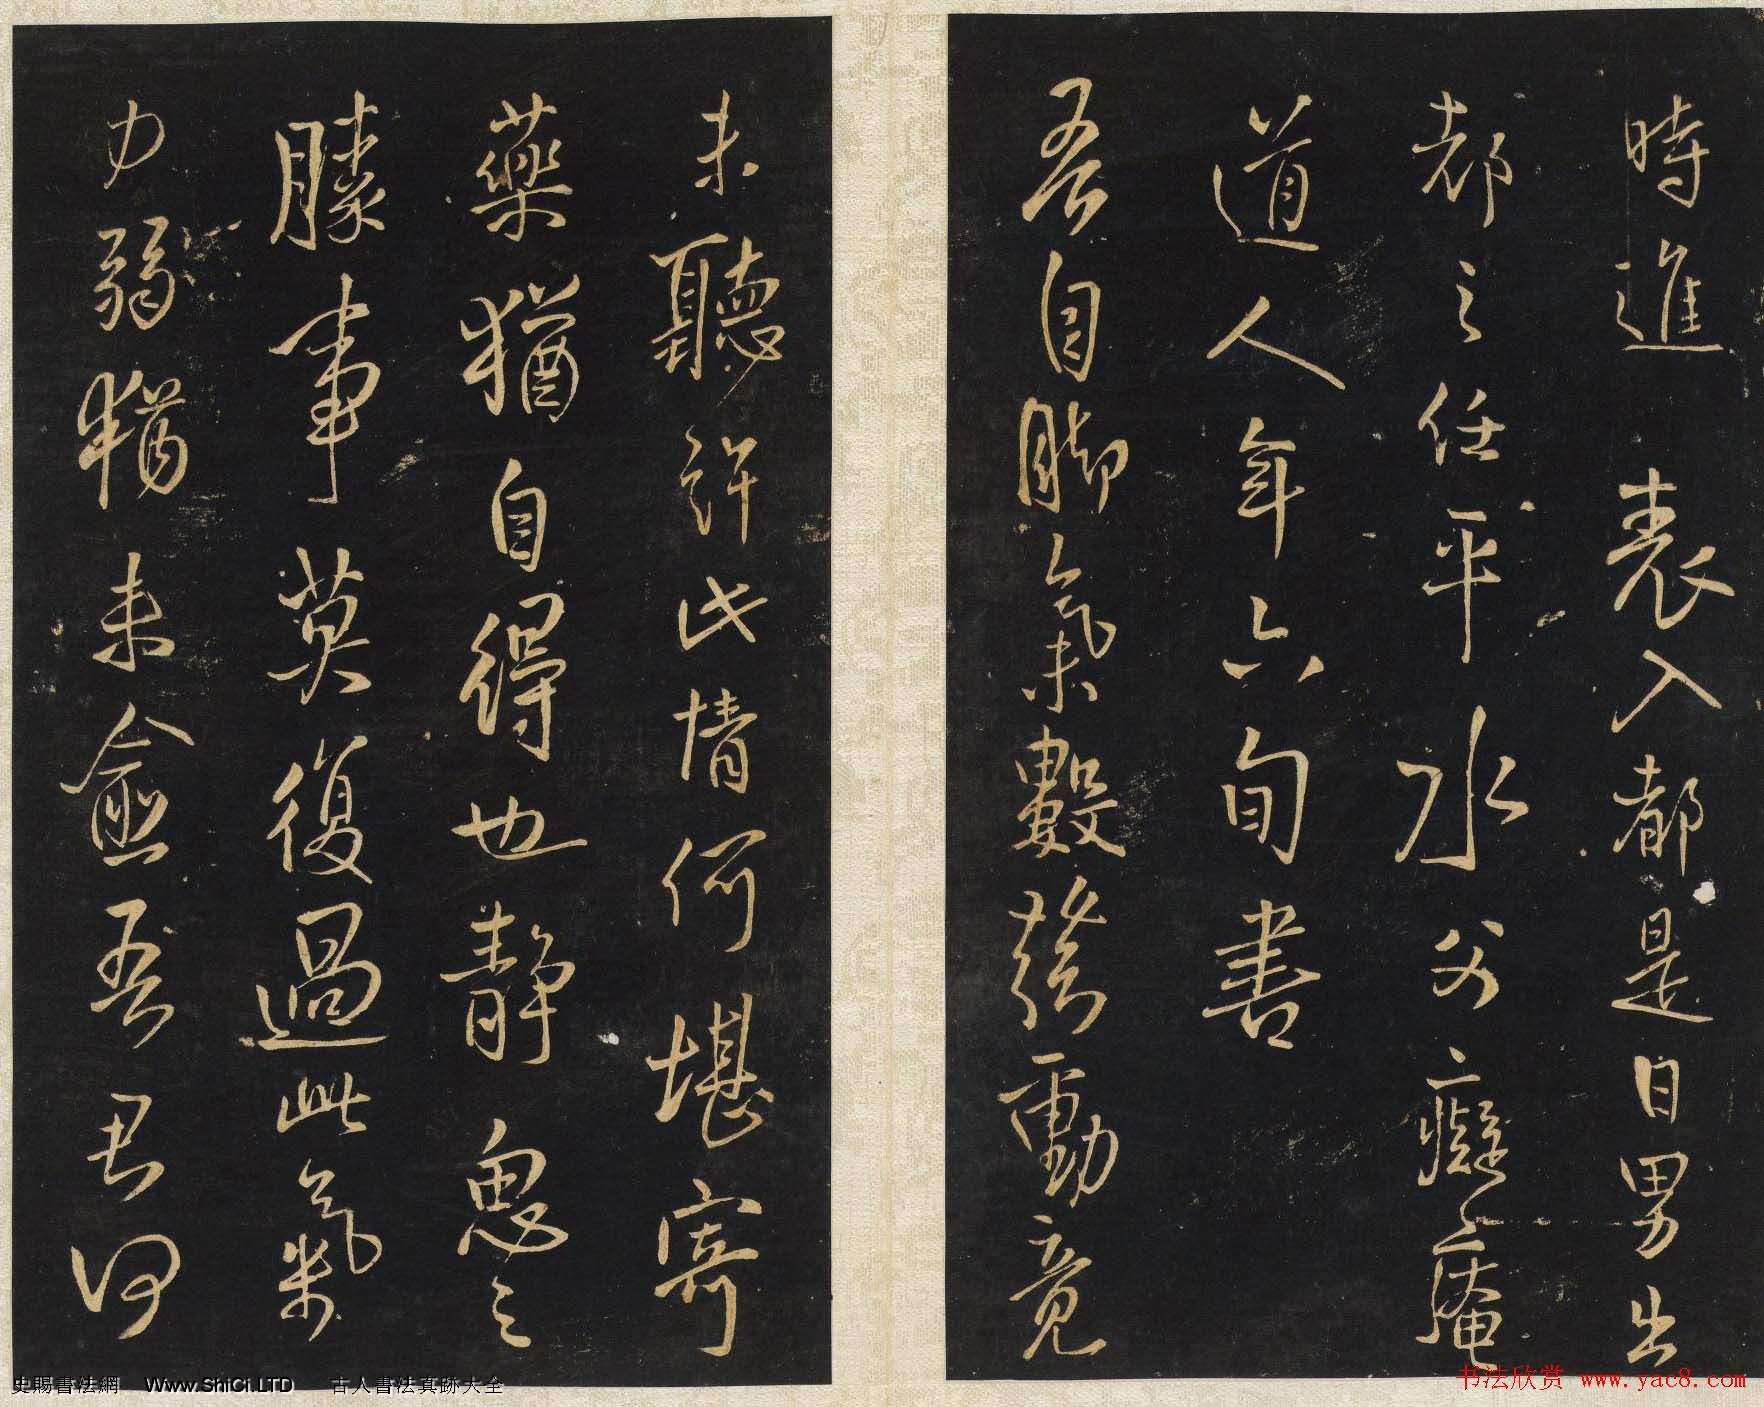 時進 表入都是日男出
都之任平水父癡庵
道人年六旬書
吾自脚氣數發動竟
未聽許此情何堪寄
藥猶自得也静思之
勝事莫復過此氣
力弱猶未愈吾君何
史賜書法網 Www.ShiCi.LTD 古人書法真跡大全
书法欣赏 www.yac8.com